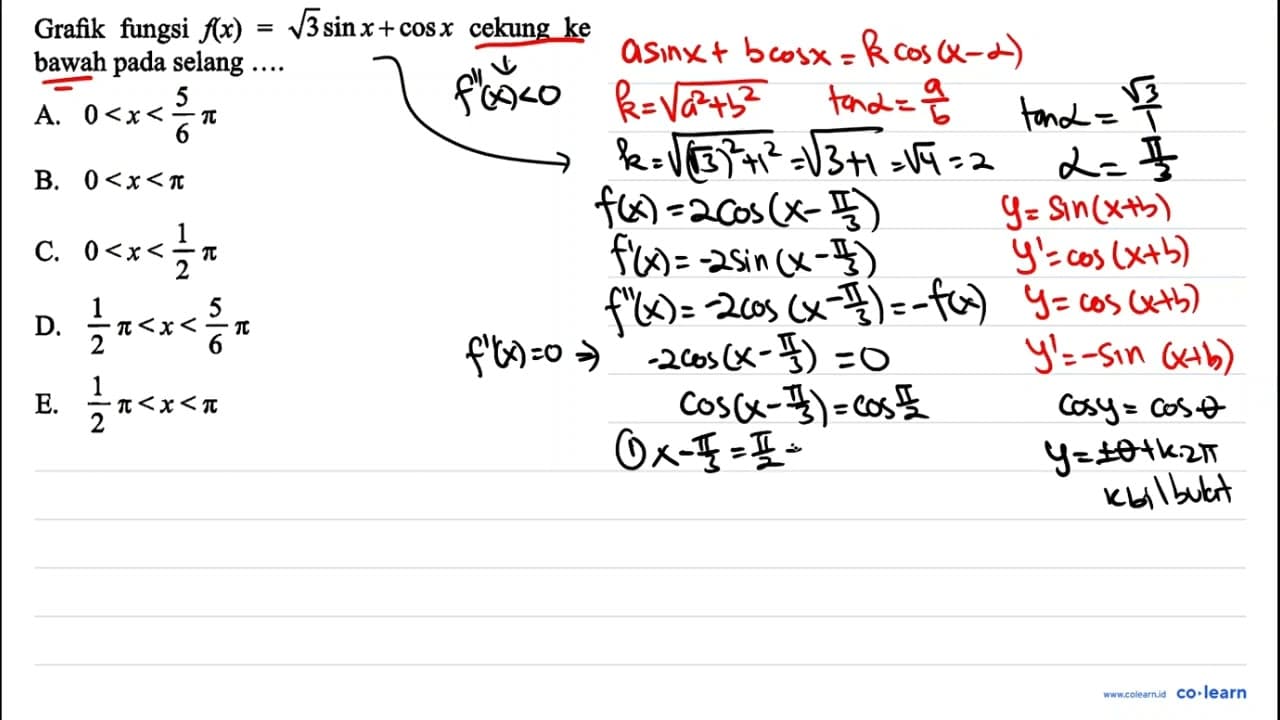 Grafik fungsi f(x) = √3 sin x + cos x cekung ke
bawah pada selang ....
A. 0 < x < 5/6 π
B. 0 < x < π
C. 0 < x < 1/2 π
D. 1/2 π < x < 5/6 π
E. 1/2 π < x < π
f''(x) < 0
a sin x + b cos x = k cos (x - α)
k = √(a² + b²) tan α = a/b
tan α = √3/1
k = √((√3)² + 1²) = √(3+1) = √4 = 2
α = π/3
f(x) = 2 cos (x - π/3)
f'(x) = -2 sin (x - π/3)
f''(x) = -2 cos (x - π/3) = -f(x)
y = sin (x+b)
y' = cos (x+b)
y = cos (x+b)
y' = -sin (x+b)
f''(x) = 0 ⇒ -2 cos (x - π/3) = 0
cos (x - π/3) = cos π/2
① x - π/3 = π/2
cos y = cos θ
y = ±θ + k.2π
k bil bulat
www.colearn.id co·learn